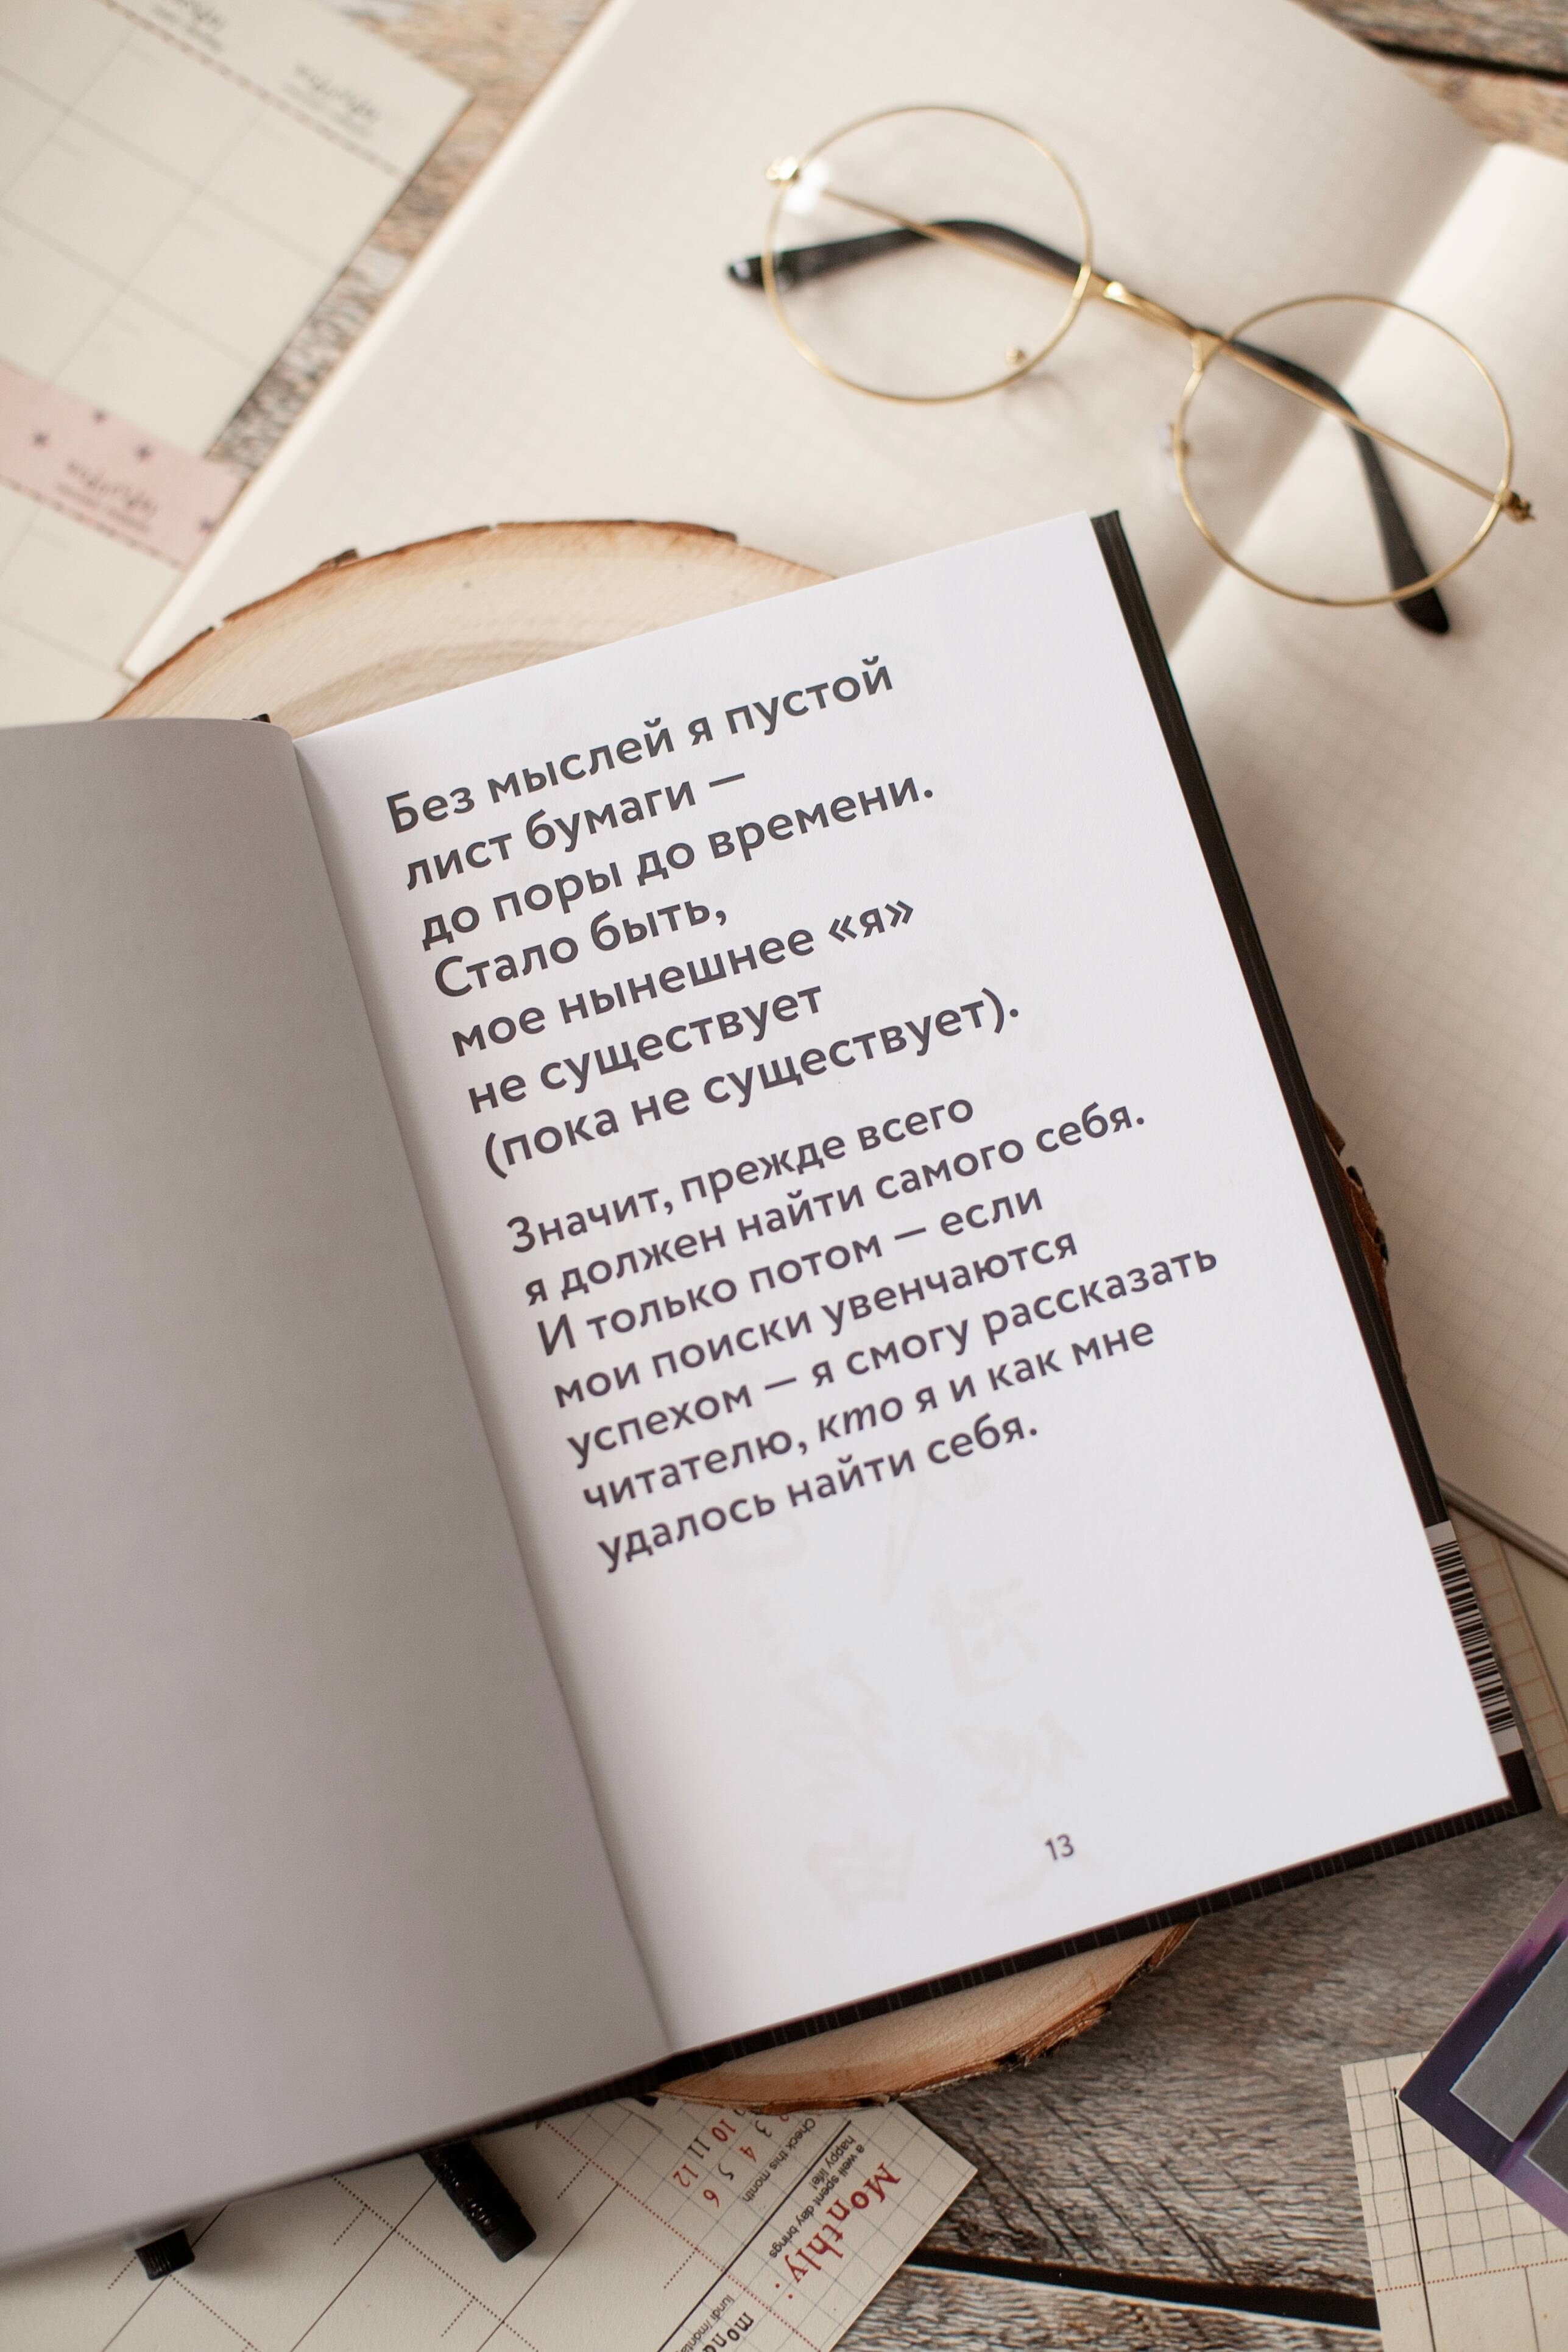 Без мыслей я пустой
лист бумаги —
до поры до времени.
Стало быть,
мое нынешнее «я»
не существует
(пока не существует).
Значит, прежде всего
я должен найти самого себя.
И только потом — если
мои поиски увенчаются
успехом — я смогу рассказать
читателю, кто я и как мне
удалось найти себя.
13
Monthly:
a well spent day brings
happy life!
Check this month
3 4 5 6
10 11 12